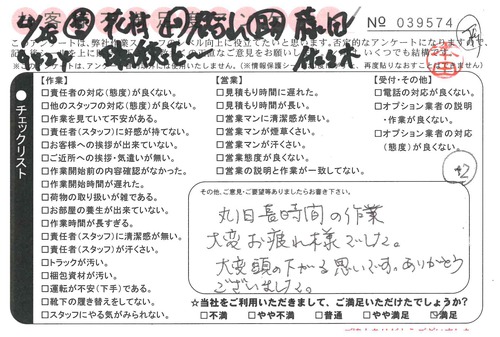 お客
No 039574
このアンケートは、弊社
【作業】
□責任者の対応(態度)が良くない。
□他のスタッフの対応(態度)が良くない。
□作業を見ていて不安がある。
□責任者(スタッフ)に好感が持てない。
□お客様への挨拶が出来ていない。
□ご近所への挨拶・気遣いが無い。
□作業開始前の内容確認がなかった。
□作業開始時間が遅れた。
□荷物の取り扱いが雑である。
□お部屋の養生が出来ていない。
□作業時間が長すぎる。
□責任者(スタッフ)に清潔感が無い。
□責任者(スタッフ)が汗くさい。
□トラックが汚い。
□梱包資材が汚い。
□運転が不安(下手)である。
□靴下の履き替えをしてない。
□スタッフにやる気がみられない。
【営業】
□見積もり時間に遅れた。
□見積もり時間が長い。
□営業マンに清潔感が無い。
□営業マンが煙草くさい。
□営業マンが汗くさい。
□営業態度が良くない。
□営業の説明と作業が一致してない。
【受付・その他】
□電話の対応が良くない。
□オプション業者の説明
・作業が良くない。
□オプション業者の対応
(態度)が良くない。
チェックリスト
42
その他、ご意見・ご要望等ありましたらお書き下さい。
丸1日長時間の作業
大変お疲れ様でした。
大変頭の下がる思いです。ありがとう
ございました。
☆当社をご利用いただきまして、ご満足いただけたでしょうか?
□不満 □やや不満 □普通 □やや満足 ☑満足